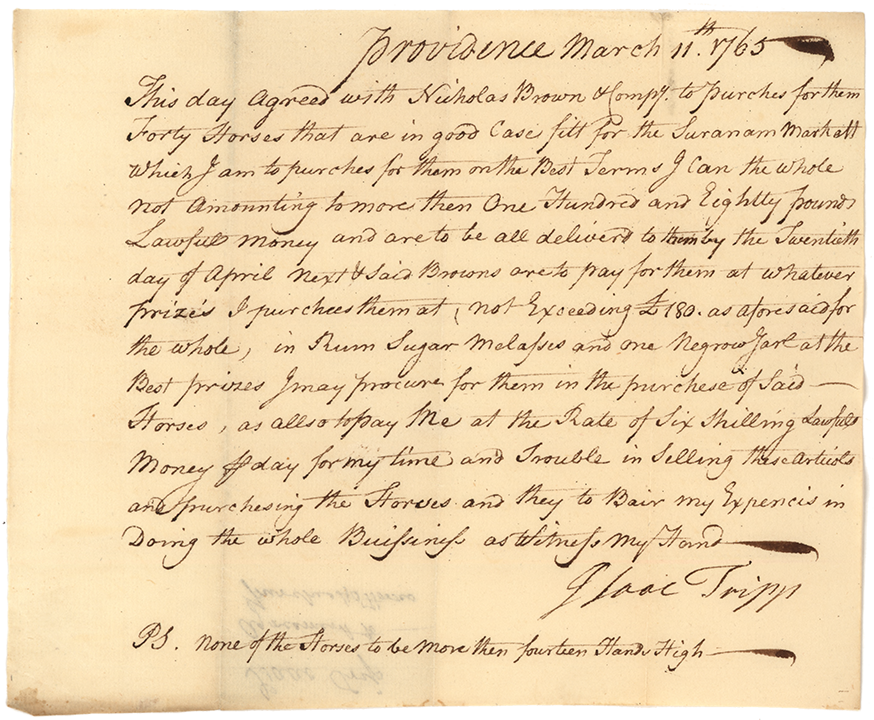 Providence March 11th. 1765
This day Agreed with Nicholas Brown & Compy. to purches for them
Forty Horses that are in good Case fitt for the Suranam Markatt
which I am to purches for them on the Best Terms I Can the whole
not Amounting to more then One Hundred and Eightty pounds
Lawfull Money and are to be all deliverd to them by the Twentieth
day of April Next & Said Browns are to pay for them at whatever
prizes I purchees them at, not Exceeding £180. as aforesaid for
the whole, in Rum Sugar Melasses and one Negrow Garl at the
Best prizes I may procure for them in the purchese of Said
Horses, as allso to pay Me at the Rate of Six Shilling Lawfull
Money ⅌ day for my time and Trouble in Selling these Articols
and purchesing the Horses and they to Bair my Expencis in
Doing the whole Buissiness as Witness My Hand
Isaac Tripp
PS. none of the Horses to be More then fourteen Hands High